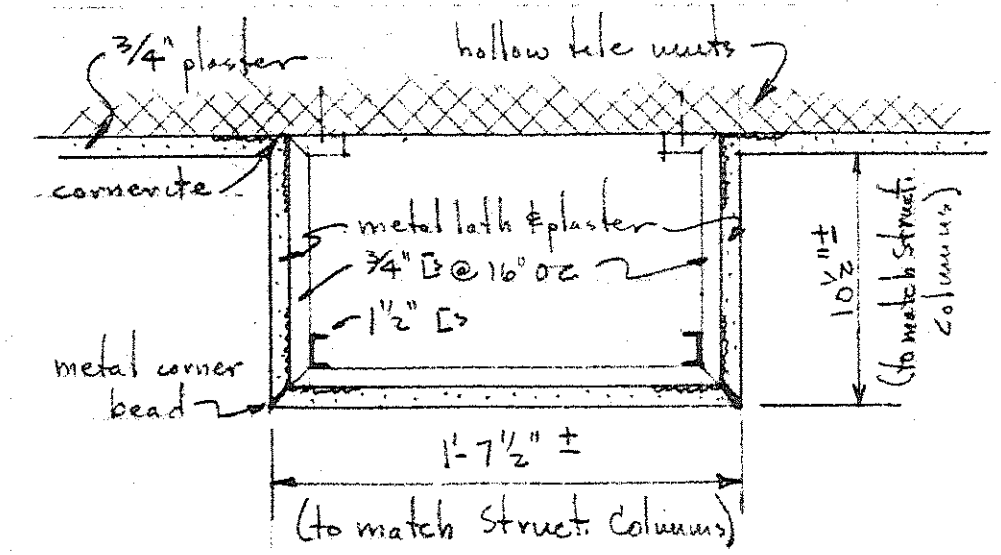 3/4" plaster
hollow tile units
cornerite
metal lath & plaster
3/4" [s @ 16" oc
1 1/2" [s
metal corner
bead
10 1/2" ±
(to match Struct.
Columns)
1'-7 1/2" ±
(to match Struct. Columns)